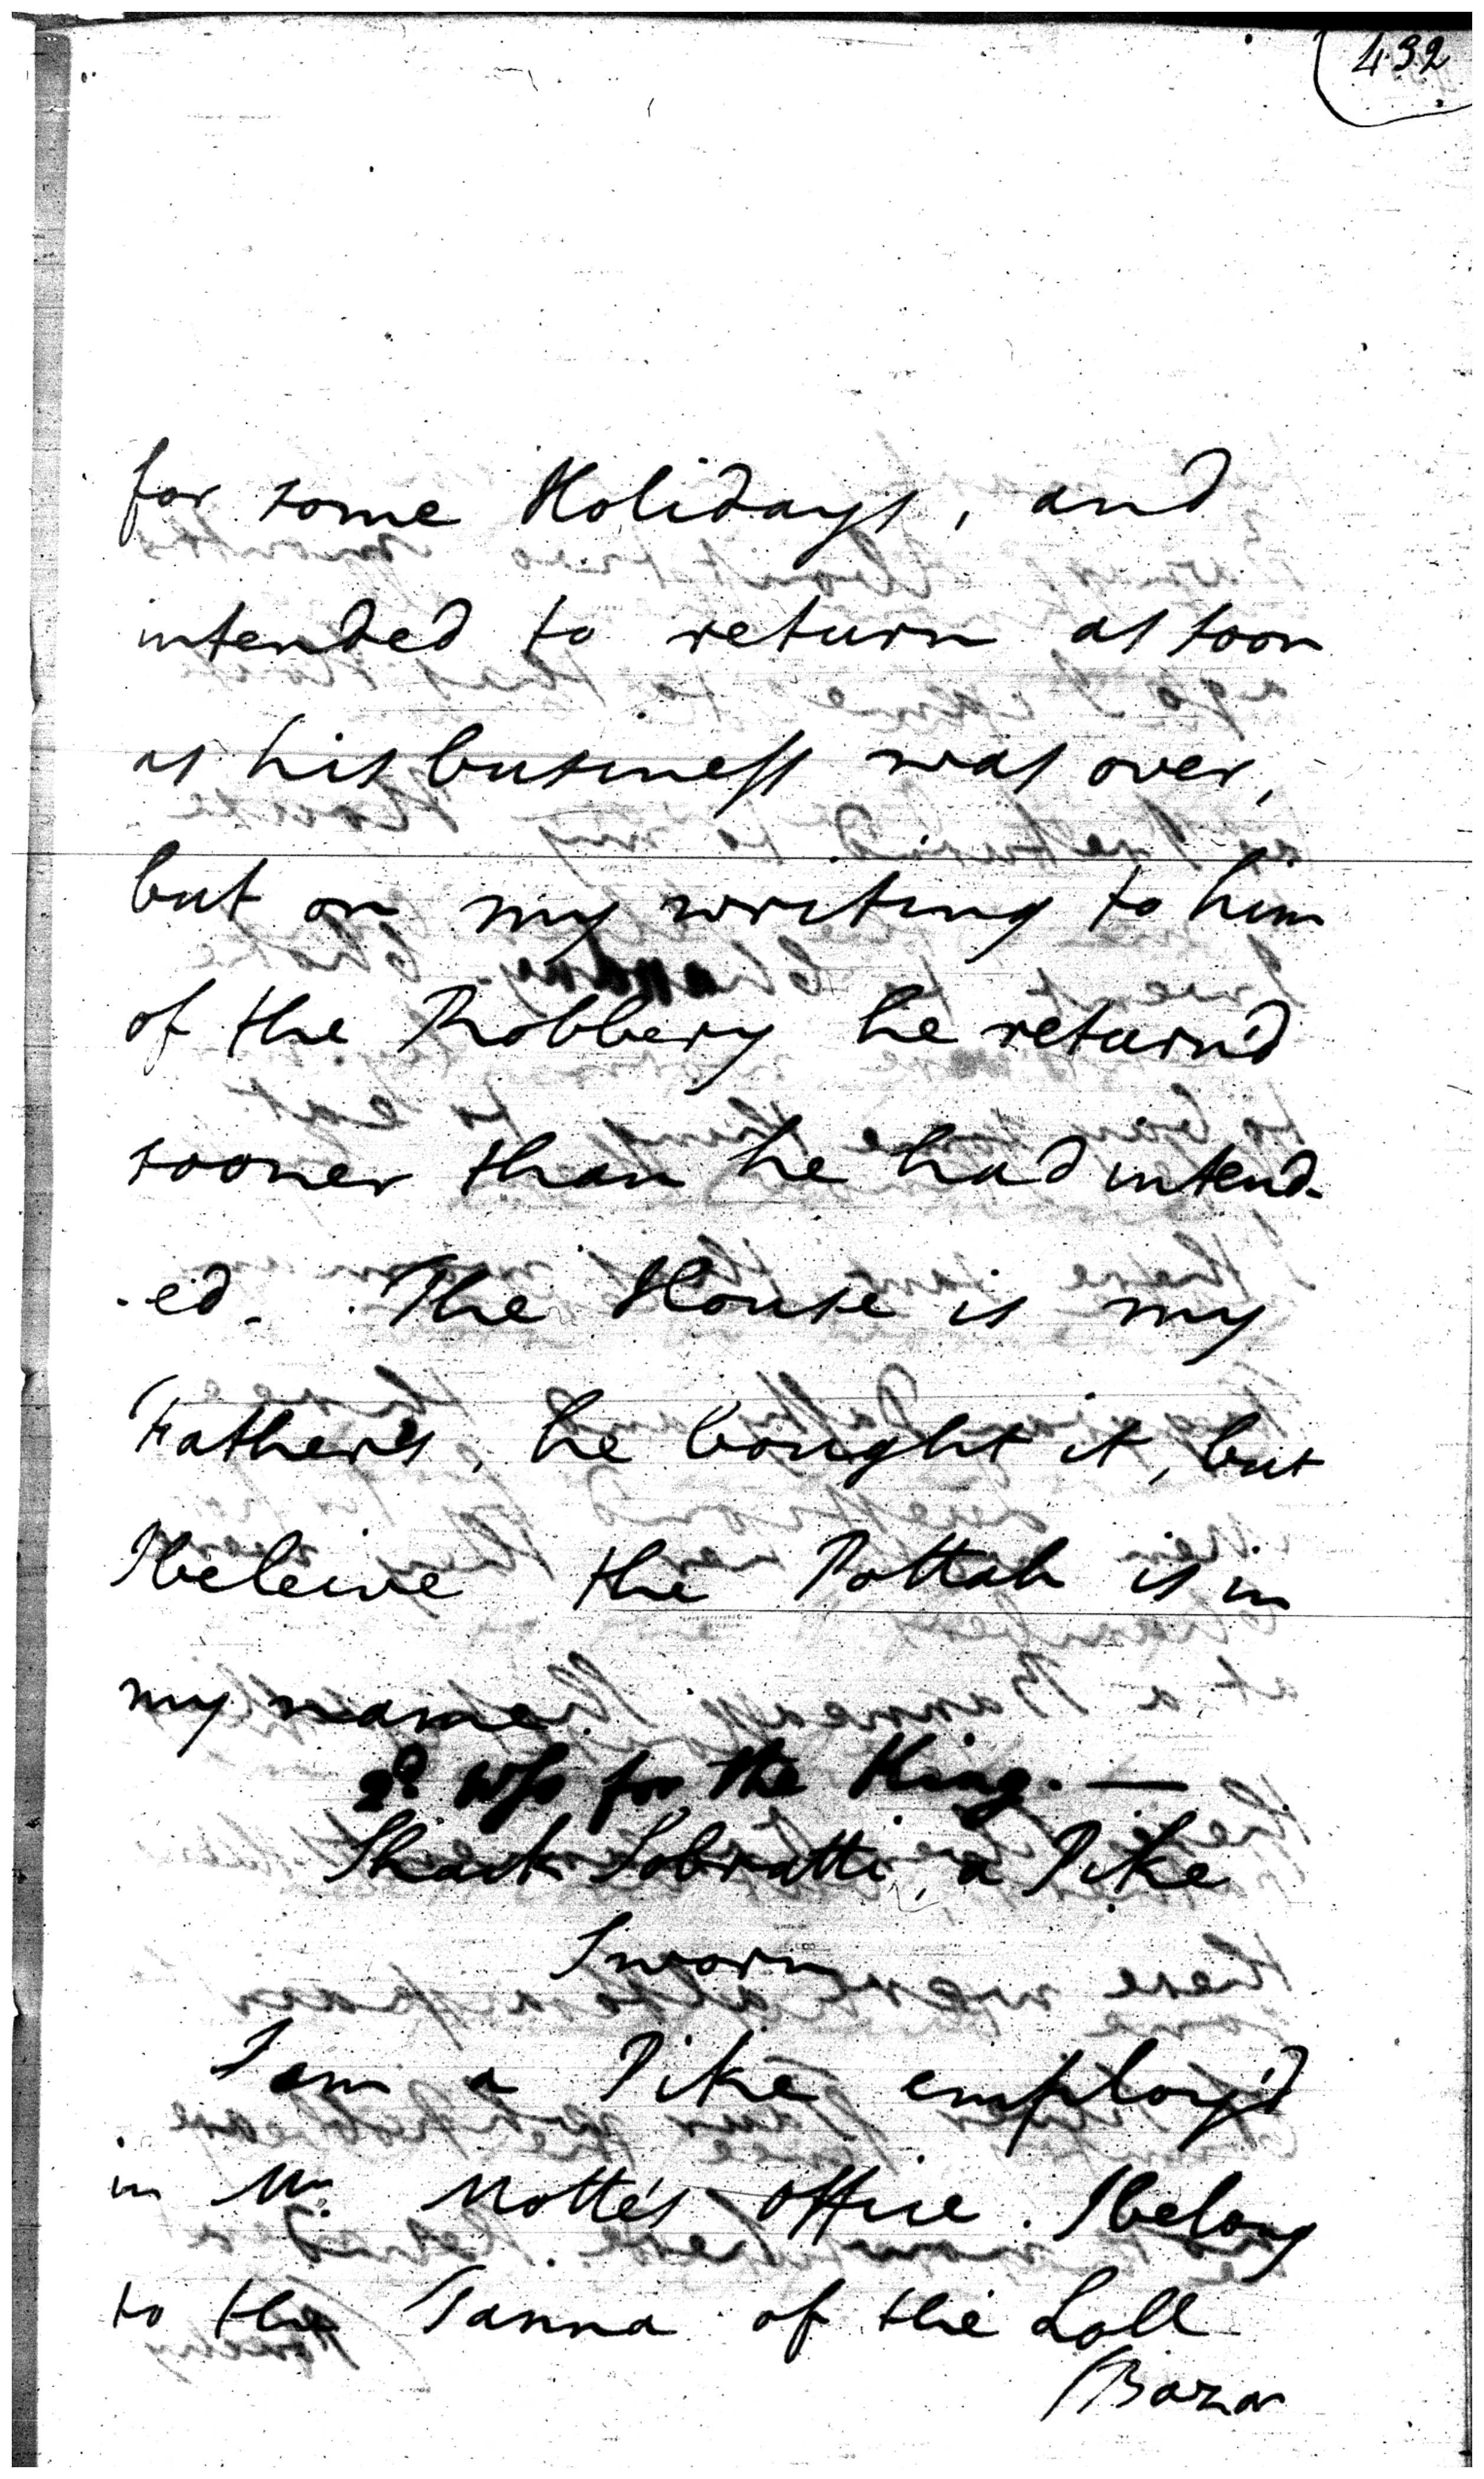 432
for some Holidays, and
intended to return as soon
as his business was over,
but on my writing to him
of the Robbery he return'd
sooner than he had intend-
-ed. The House is my
Father's, he bought it, but
I beleive the Pottah is in
my name.
2d. Wss for the King. —
Shaik Sobratti, a Pike
Sworn
I am a Pike employ'd
in Mr. Motte's office. I belong
to the Tanna of the Loll
Bazar